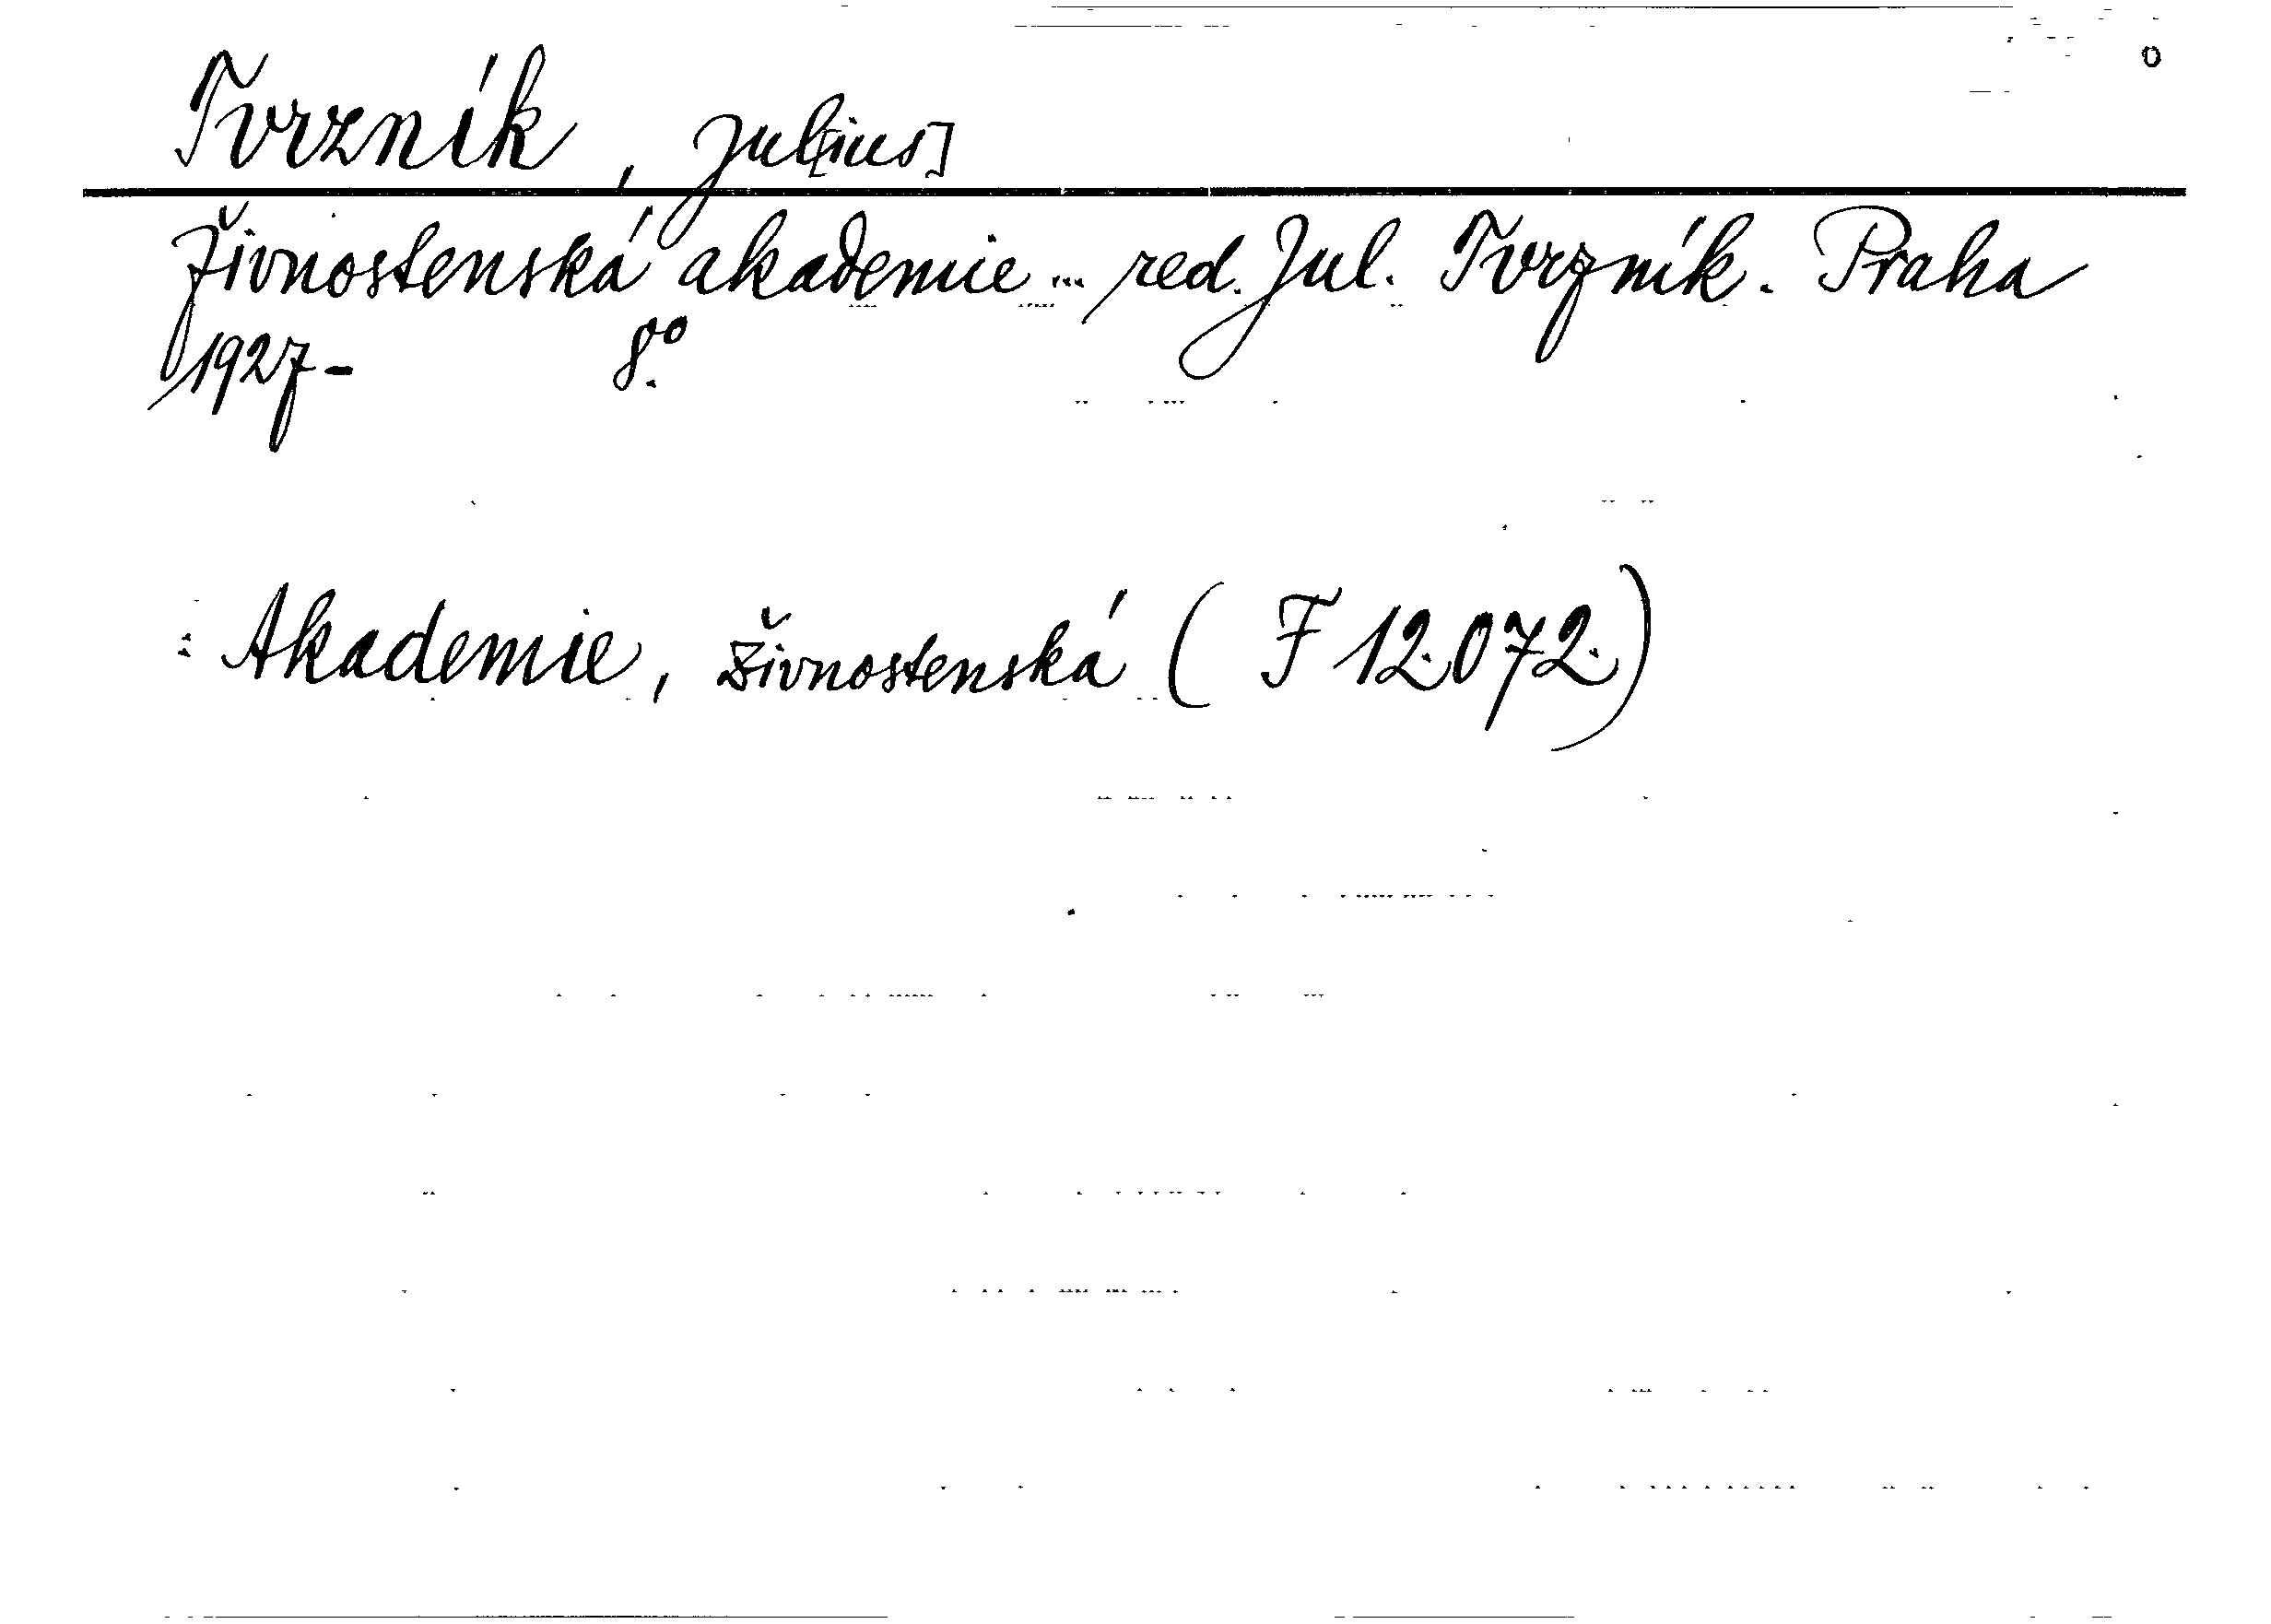 Tvrzník, Jul[ius]
Živnostenská akademie ... red. Jul. Tvrzník. Praha
1927- 8°.
: Akademie, živnostenská (F 12.072.)